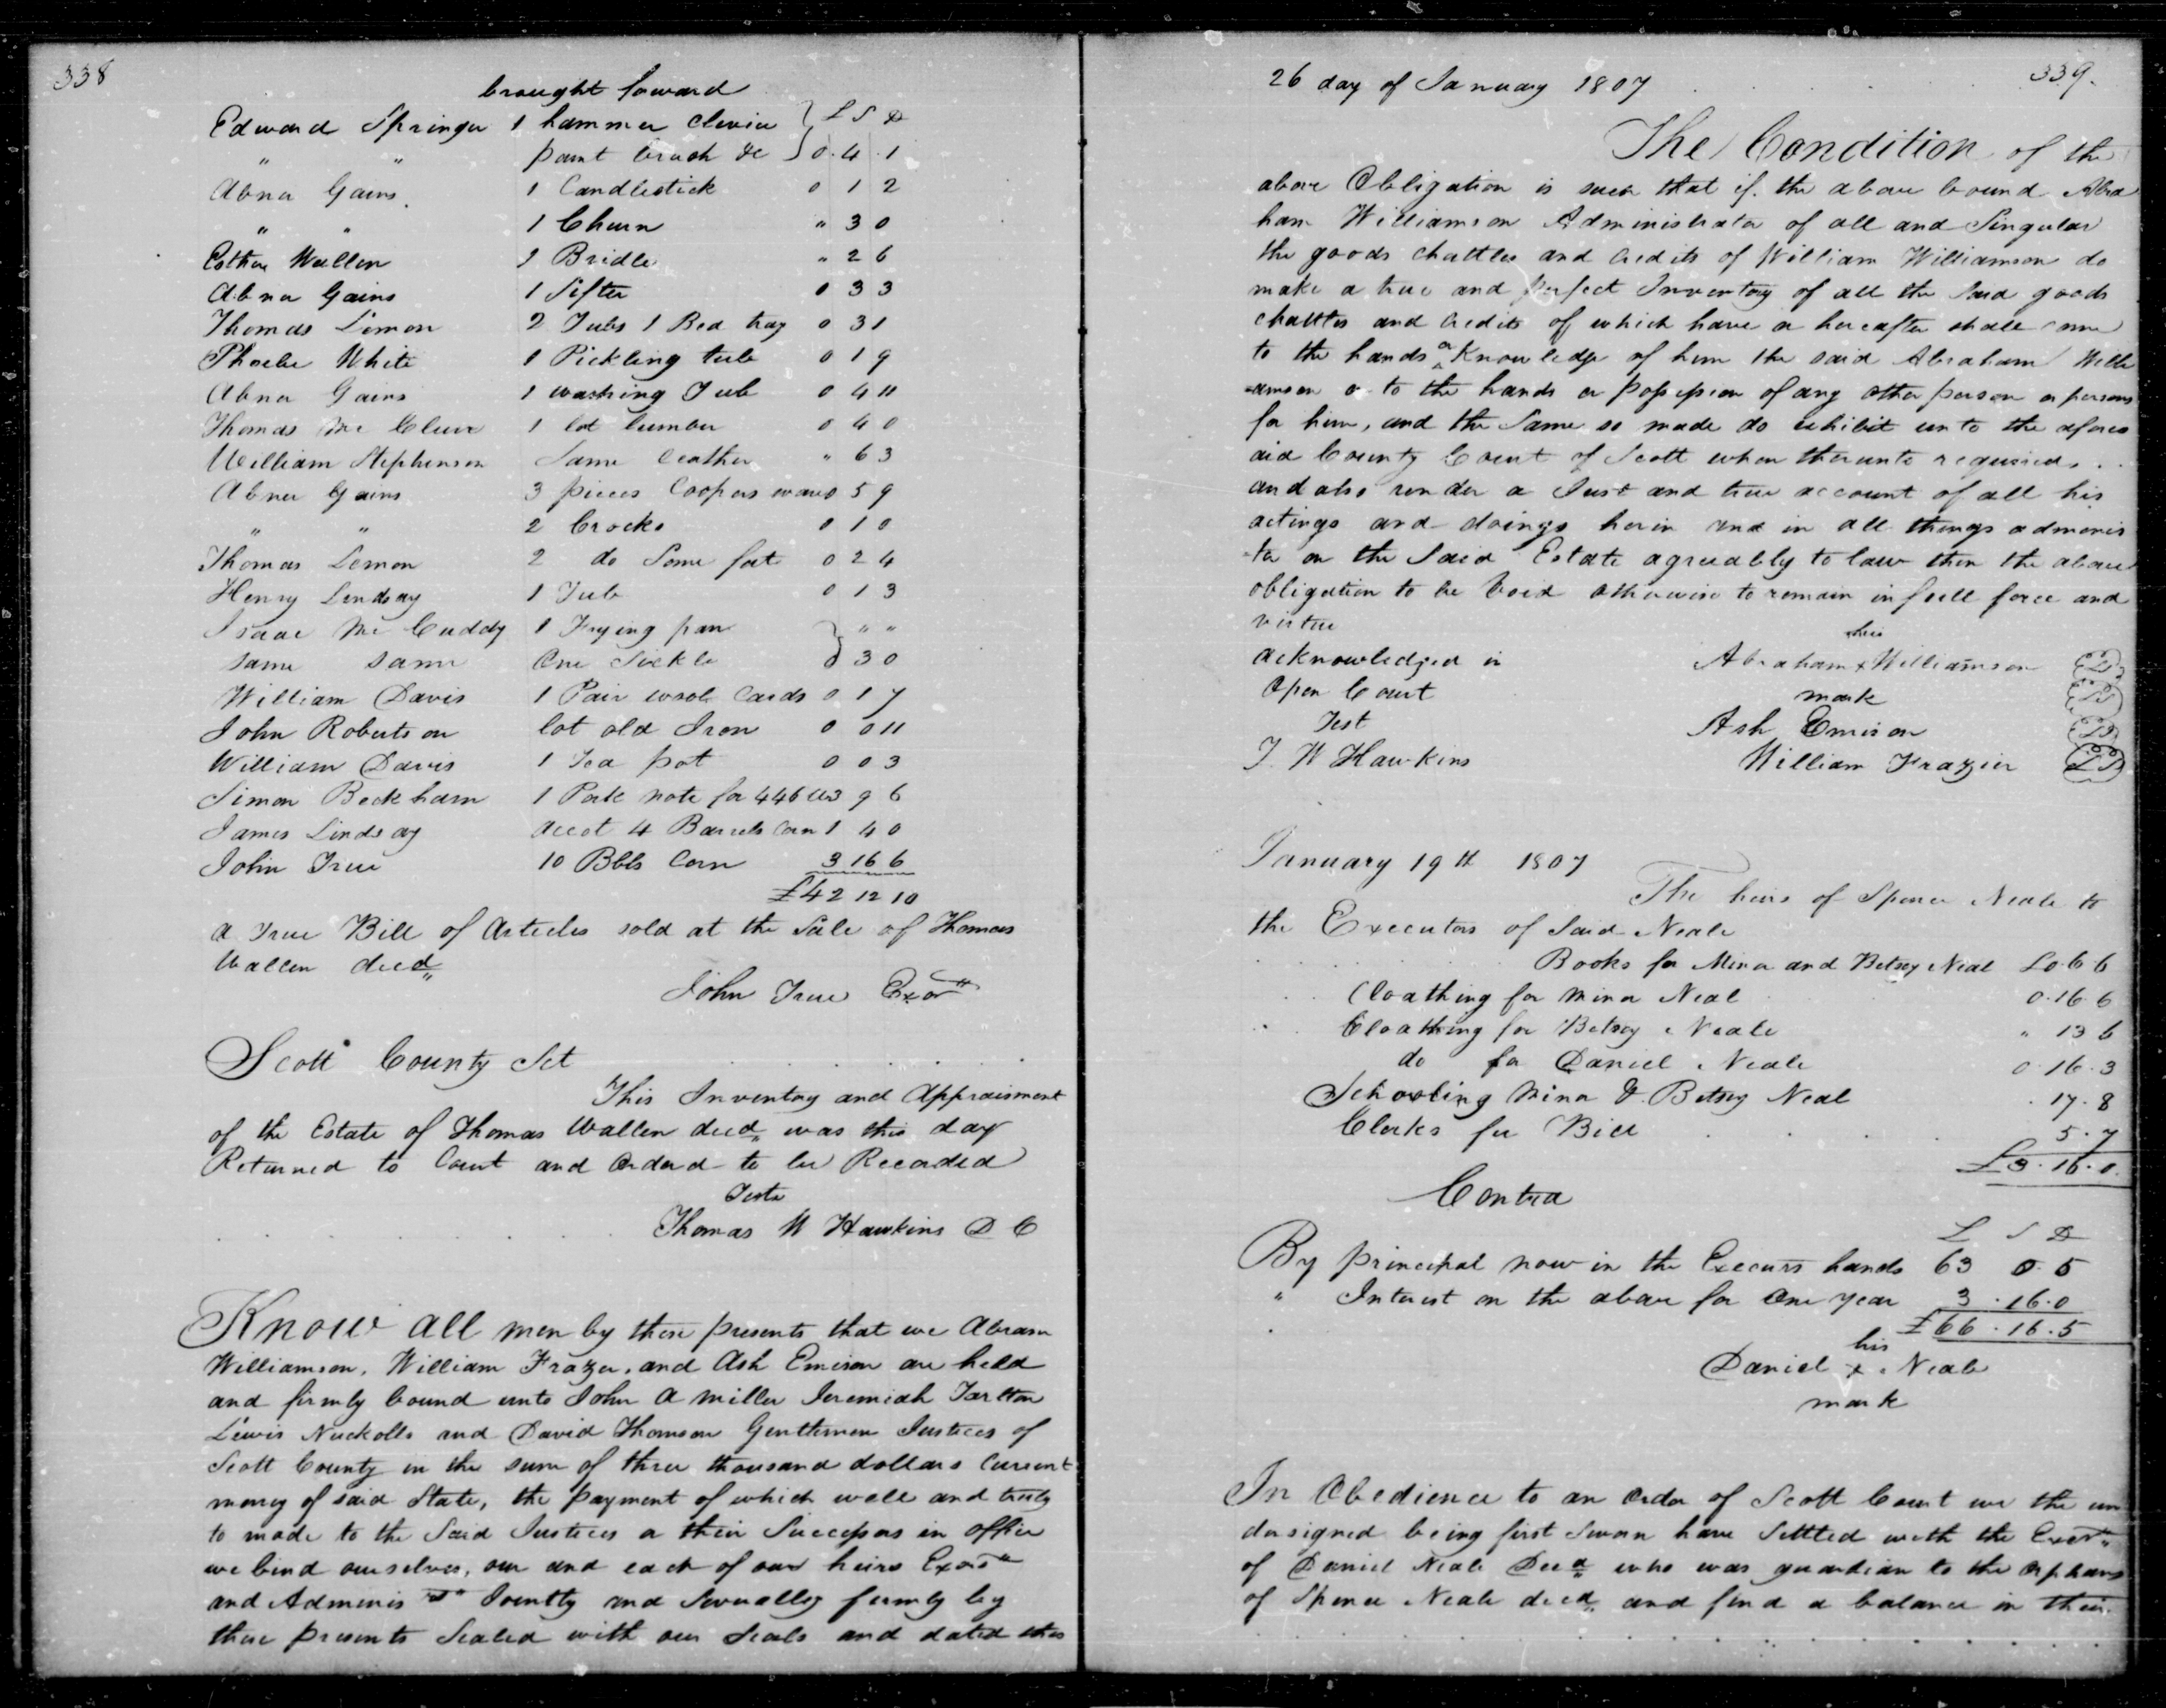 338
brought foward
Edward Springer 1 hammer Clevice } L S D
" " paint brush &c } 0.4.1
Abner Gains 1 Candlestick 0 1 2
" " 1 Churn " 3 0
Esther Wallen 1 Bridle " 2 6
Abner Gains 1 Sifter 0 3 3
Thomas Lemon 2 Tubs 1 Bed tray 0 3 1
Phoebe White 1 Pickling tub 0 1 9
Abner Gains 1 washing Tub 0 4 11
Thomas Mc Clure 1 lot lumber 0 4 0
William Stephenson Some leather " 6 3
Abner Gains 3 pieces Coopers ware 0 5 9
" " 2 Crocks 0 1 0
Thomas Lemon 2 do Some fat 0 2 4
Henry Lindsay 1 Tub 0 1 3
Isaac Mc Cuddy 1 Frying pan } " "
same same One Sickle } 0 3 0
William Davis 1 Pair wool Cards 0 1 7
John Robertson lot old Iron 0 0 11
William Davis 1 Tea pot 0 0 3
Simon Beckham 1 Pork note for 446 lbs 3 9 6
James Lindsay Accot 4 Barrels Corn 1 4 0
John True 10 Bbls Corn 3 16 6
£42 12 10
A True Bill of Articles sold at the Sale of Thomas
Wallen decd
John True Exor
Scott County Sct
This Inventory and Appraisment
of the Estate of Thomas Wallen decd was this day
Returned to Court and Orderd to be Recorded
Teste
Thomas W Hawkins D C
Know all men by these presents that we Abram
Williamson, William Frazer, and Ash Emison are held
and firmly bound unto John A Miller Jeremiah Tarlton
Lewis Nuckolls and David Thomson Gentlemen Justices of
Scott County in the sum of three thousand dollars Current
money of said State, the payment of which well and truly
to made to the Said Justices or their Successors in office
we bind ourselves, our and each of our heirs Exors
and Adminis rs Jointly and Severally firmly by
these presents Sealed with our Seals and dated this
339.
26 day of January 1807
The Condition of the
above Obligation is such that if the above bound Abra
ham Williamson Administrator of all and Singular
the goods chattles and Credits of William Williamson do
make a true and perfect Inventory of all the Said goods
chattles and Credits of which have or hereafter shall come
to the hands or Knowledge of him the said Abraham Willi
-amson or to the hands or possession of any other person or persons
for him, and the Same so made do exhibit unto the afores
aid County Court of Scott when thereunto required .
and also render a Just and true account of all his
actings and doings herin and in all things adminis
-ter on the Said Estate agreeably to law then the above
obligation to be Void otherwise to remain in full force and
virtue
acknowledged in
open Court
Test
T. W Hawkins
his
Abraham x Williamson LS
mark LS
Ash Emison LS
William Frazier LS
January 19th 1807
The heirs of Spence Neale to
the Executors of Said Neale
Books for Mina and Betsey Neal £0.6.6
Cloathing for Mina Neal 0.16.6
Cloathing for Betsey Neale " 13 6
do for Daniel Neale 0.16.3
Schooling Mina & Betsey Neal . 17.8
Clerks fee Bill 5.7
£3.16.0
Contra
L S D
By principal now in the Execurs hands 63 0.5
" Interest on the above for One year 3.16.0
£66.16.5
his
Daniel x Neale
mark
In Obedience to an Order of Scott Court we the un
dersigned being first Sworn have Settled with the Exors
of Daniel Neale Decd who was guardian to the Orphans
of Spence Neale decd and find a balance in their